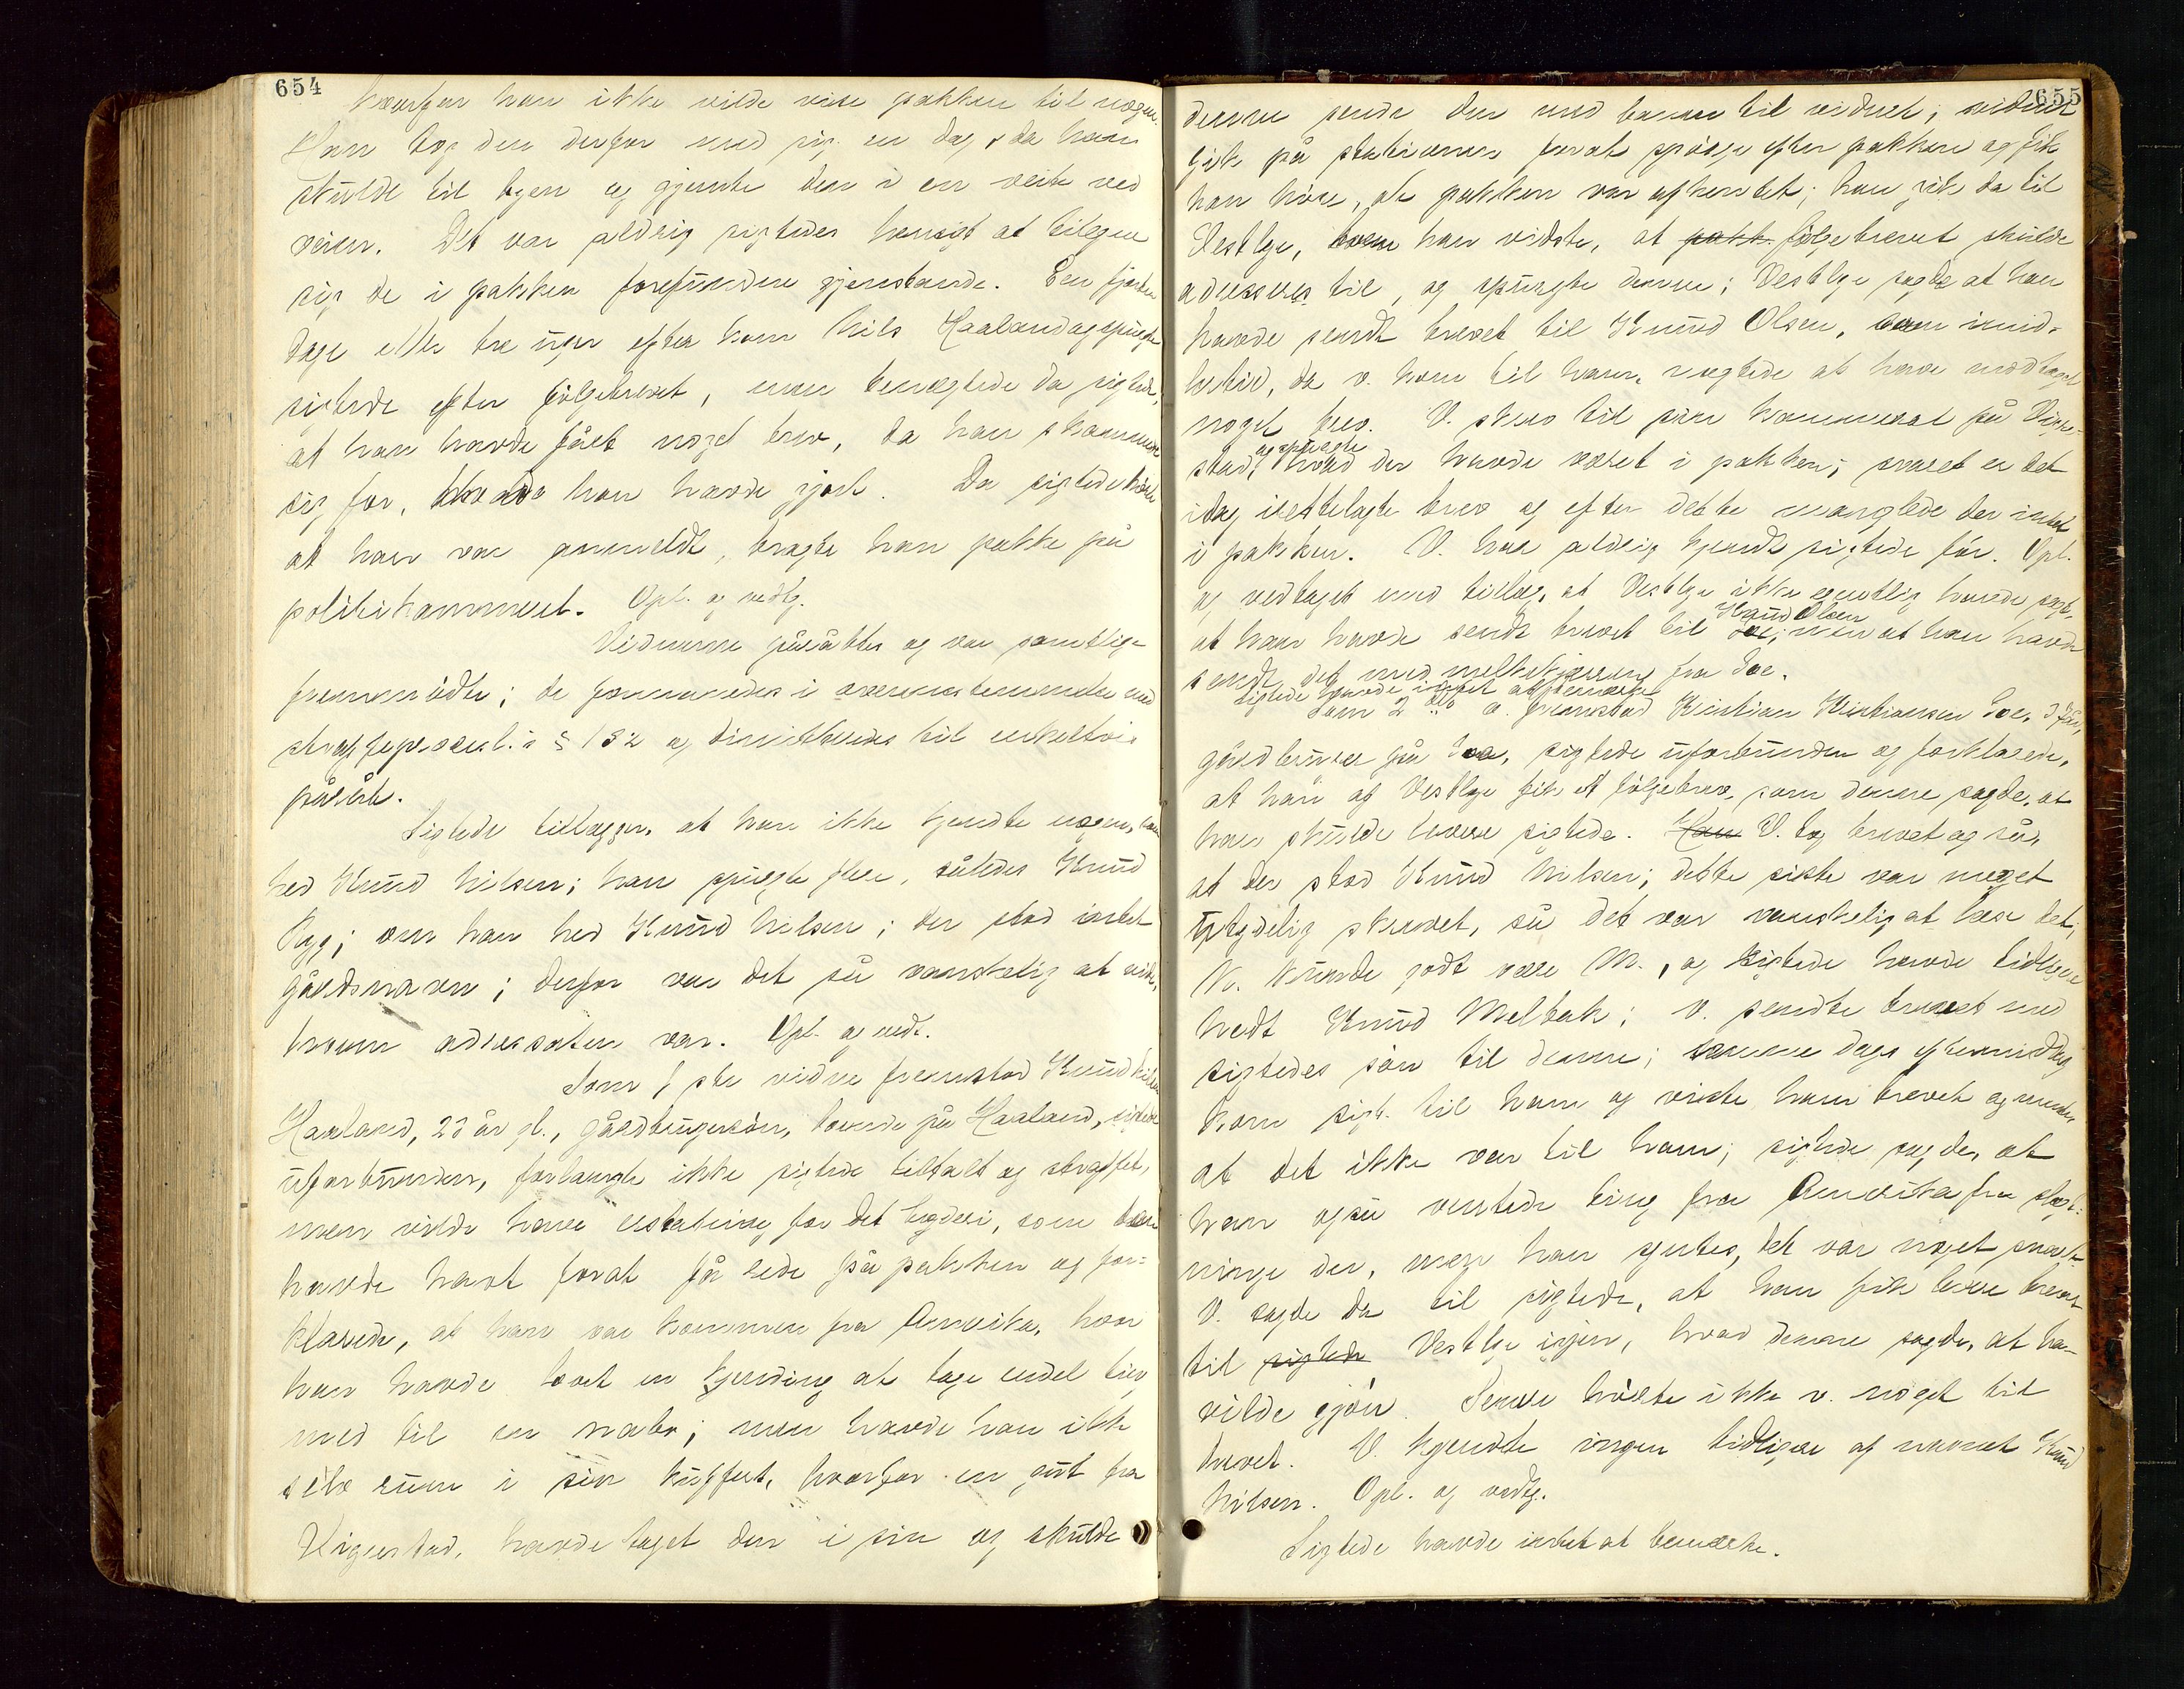 654
hvorfor han ikke vilde vise pakken til nogen.
Han tog den derfor med sig en dag, da han
skulde til byen og gjemte den i en veite ved
veien. Det var aldrig sigtedes hensigt at tilegne
sig de i pakken forefundne gjenstande. En fjorten
dage eller tre uger efter kom Nils Haaland og spurgte
sigtede efter følgebrevet, men benegtede da sigtede,
at han havde fået noget brev, da han skammede
sig for, hvad han havde gjort. Da sigtede hørte
at han var anmeldt, bragte han pakke på
politikammeret. Opl. og vedtg.
Vidnerne påråbtes og var samtlige
fremmødte; de formanedes i overensstemmelse med
straffeproceslov. § 182 og dimitteredes til enkeltvis
påråb.
Sigtede tillægger, at han ikke kjendte nogen, som
hed Knud Nilsen; han spurgte flere, således Knud
Rygg; om han hed Knud Nilsen; der stod intet
gårdsnavn; derfor var det så vanskelig at vide,
hvem adressaten var. Opl. og vedt.
Som 1ste vidne fremstod Knud Nilsen
Haaland, 23 år gl., gårdbrugersøn, boende på Haaland, sigtede
uforbunden, forlangte ikke sigtede tiltalt og straffet,
men vilde have erstatning for det bryderi, som han
havde havt forat få rede på pakken og for-
klarede, at han var kommen fra Amerika, hvor
han havde lovet en kjending at tage endel ting
med til en nabo; men havde han ikke
selv rum i sin kuffert, hvorfor en gut fra
Vigrestad, havde taget den i sin og skulde
655
denne sende den med banen til vidnet; vidnet
gik på stationen forat spørge efter pakken og fik
han høre, at pakken var afhentet; han gik da til
Vestlye, hvem han vidste, at pakk. følgebrevet skulde
adresseres til, og spurgte denne; Vestlye sagde at han
havde sendt brevet til Knud Olsen, som imid-
lertid, da v. kom til ham, negtede at have modtaget
noget brev. V. skrev til sin kammerat på Vigre-
og spurgte
stad, hvad der havde været i pakken; svaret er det
idag irettelagte brev og efter dette manglede der intet
i pakken. V. har aldrig kjendt sigtede før. Opl.
og vedtaget med tillæg, at Vestlye ikke egentlig havde sagt,
Knud Olsen
at han havde sendt brevet til Soe; men at han havde
sendt det med melkekjøreren fra Soe.
Sigtede havde intet at bemærke
Som 2det v. fremstod Kristian Kristiansen Soe, år,
gårdbruger på Soe, sigtede uforbunden og forklarede,
at han af Vestlye fik et følgebrev, som denne sagde, at
han skulde levere sigtede. Han V. tog brevet og så,
at der stod Knud Nilsen; dette sidste var meget
utydelig skrevet, så det var vanskelig at læse det;
N. kunde godt være M., og sigtede havde tidligere
hedt Knud Melbak; v. sendte brevet med
sigtedes søn til denne; samme dags eftermiddag
kom sigt. til ham og viste ham brevet og mente,
at det ikke var til ham; sigtede sagde, at
han også ventede ting fra Amerika fra slægt-
ninge der, men han syntes, det var noget snart.
V. sagde da til sigtede, at han fik levere brevet
til sigtede Vestlye igjen, hvad denne sagde, at han
vilde gjøre. Senere hørte ikke v. noget til
brevet. V. kjendte ingen tidligere af navnet Knud
Nilsen. Opl. og vedtg.
Sigtede havde intet at bemærke.